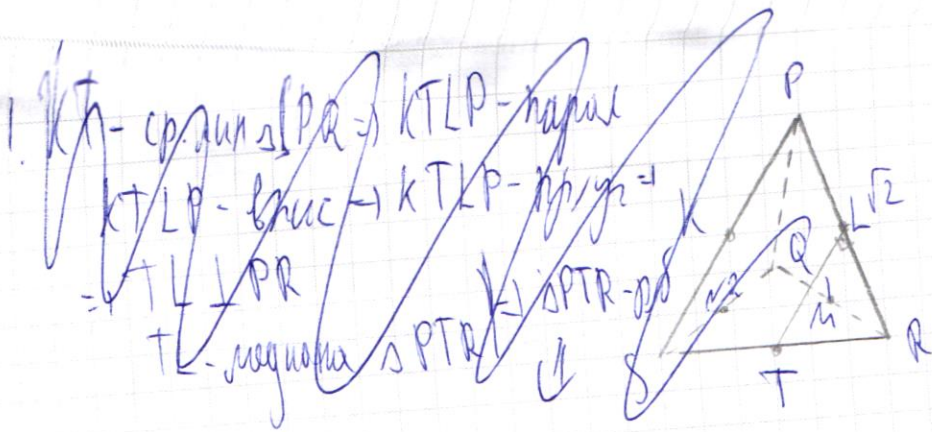 1. KT - ср. лин △SPR ⇒ KTLP - парал
KTLP - впис ⇒ KTLP - пряуг ⇒
⇒ TL ⊥ PR
TL - медиана △PTR ⇒ △PTR - рб
⇓
P
K
L √2
Q
M
S
T
R